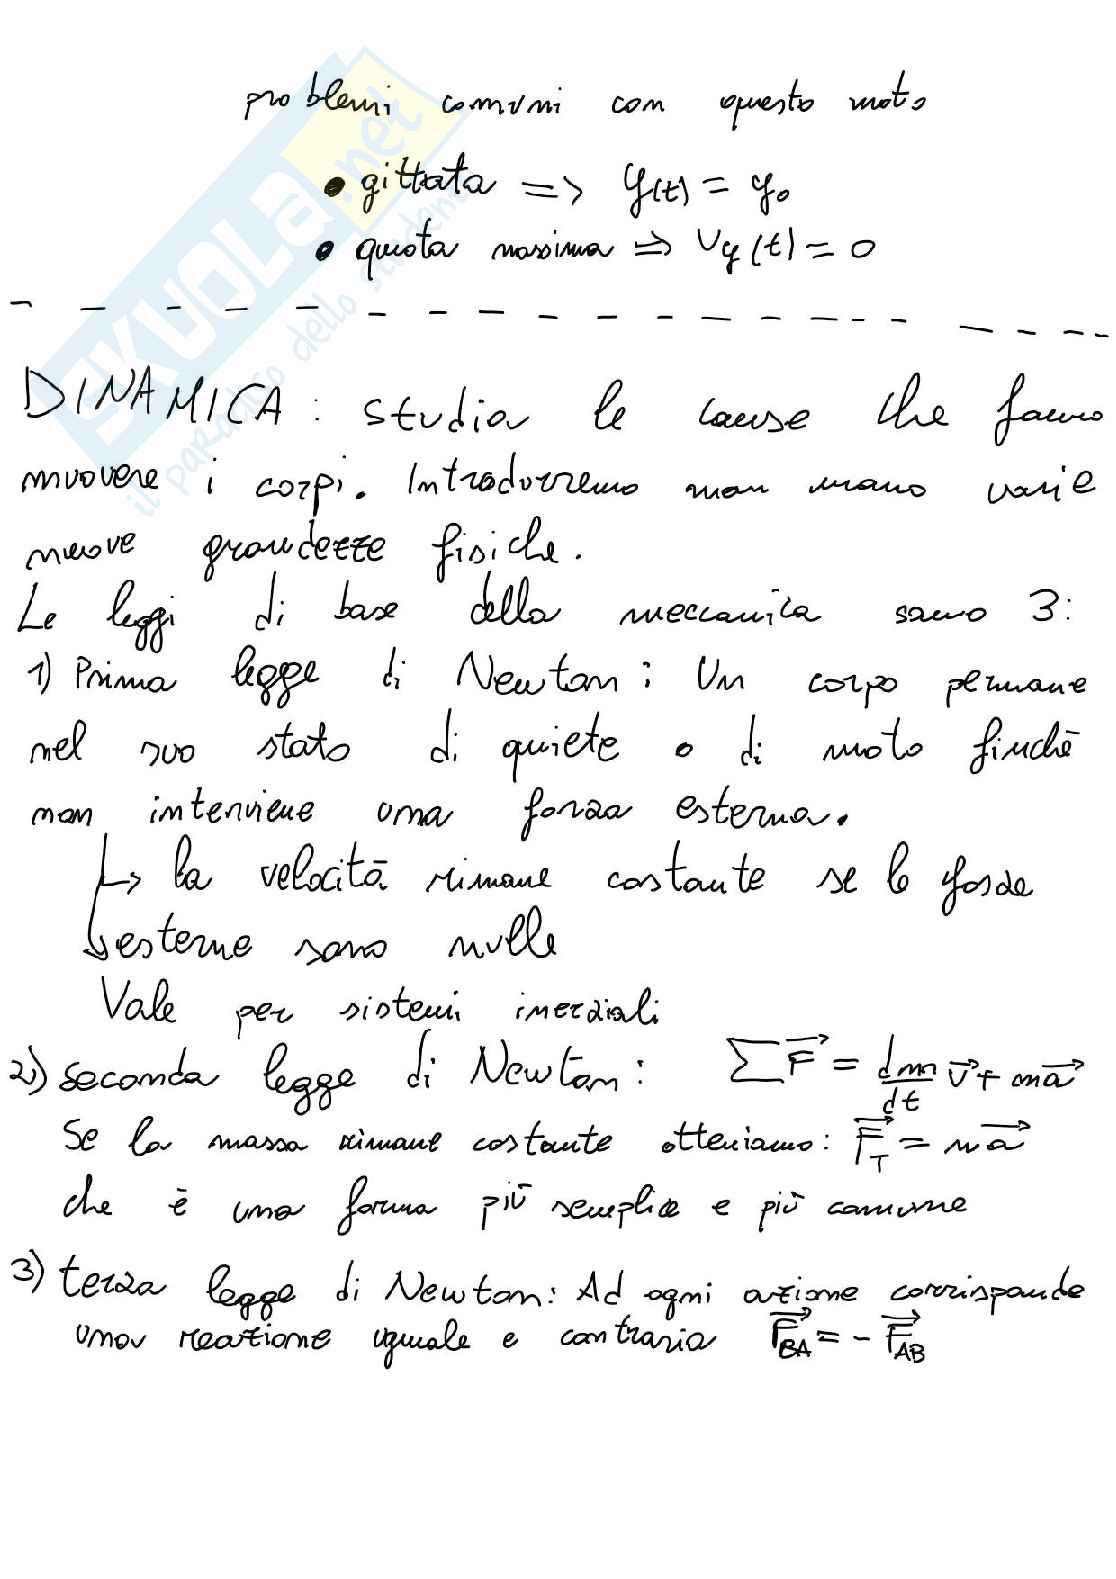 problemi comuni con questo moto
• gittata => y(t) = y₀
• quota massima => Vy(t) = 0
SKUOLA.net
il paradiso dello studente
DINAMICA: studia le cause che fanno
muovere i corpi. Introdurremo man mano varie
nuove grandezze fisiche.
Le leggi di base della meccanica sono 3:
1) Prima legge di Newton: Un corpo permane
nel suo stato di quiete o di moto finchè
non interviene una forza esterna.
↳ la velocità rimane costante se le forze
↳ esterne sono nulle
Vale per sistemi inerziali
2) seconda legge di Newton: ∑F⃗ = dm/dt v⃗ + ma⃗
Se la massa rimane costante otteniamo: F⃗_T = ma⃗
che è una forma più semplice e più comune
3) terza legge di Newton: Ad ogni azione corrisponde
una reazione uguale e contraria F⃗_BA = - F⃗_AB